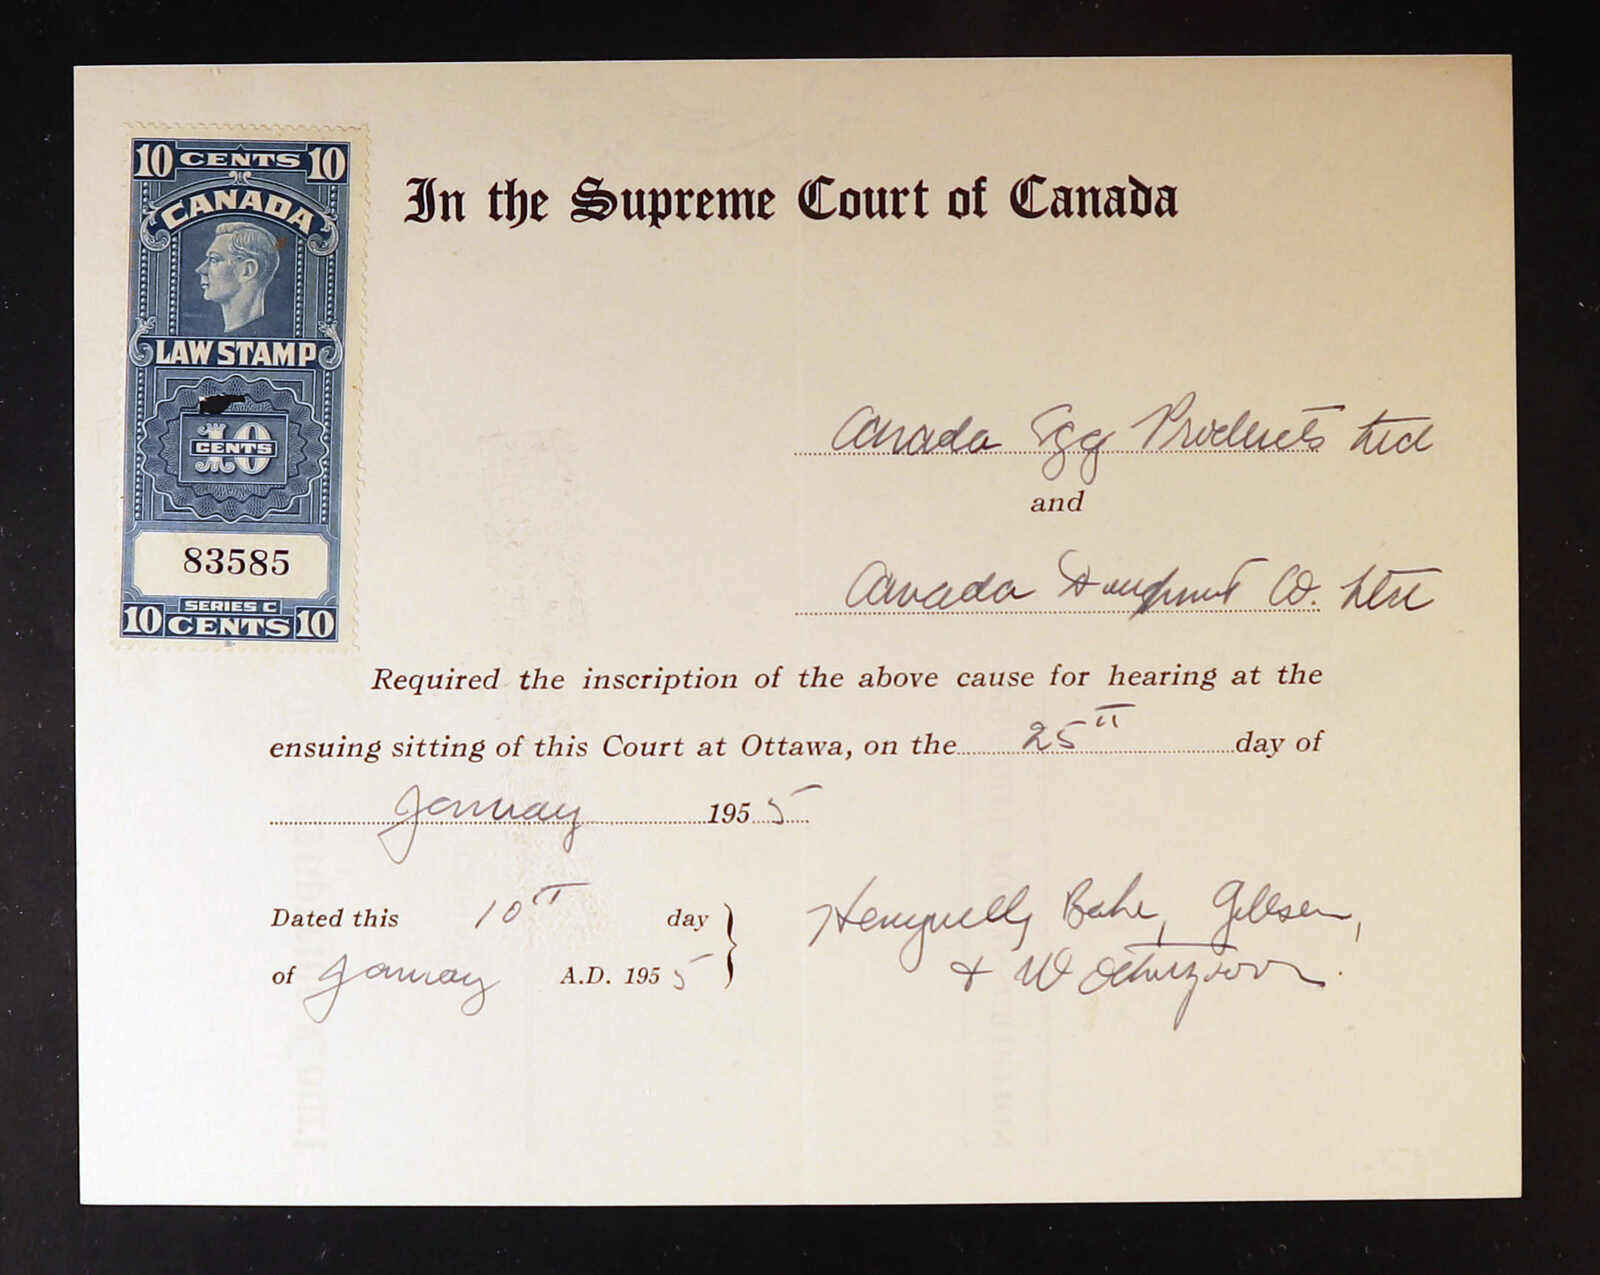 10 CENTS 10
CANADA
LAW STAMP
10
CENTS
83585
SERIES C
10 CENTS 10
In the Supreme Court of Canada
Canada Egg Products Ltd
and
Canada Co. Ltd
Required the inscription of the above cause for hearing at the
ensuing sitting of this Court at Ottawa, on the 25th day of
January 1955
Dated this 10th day
of January A.D. 1955
Gilles,
&